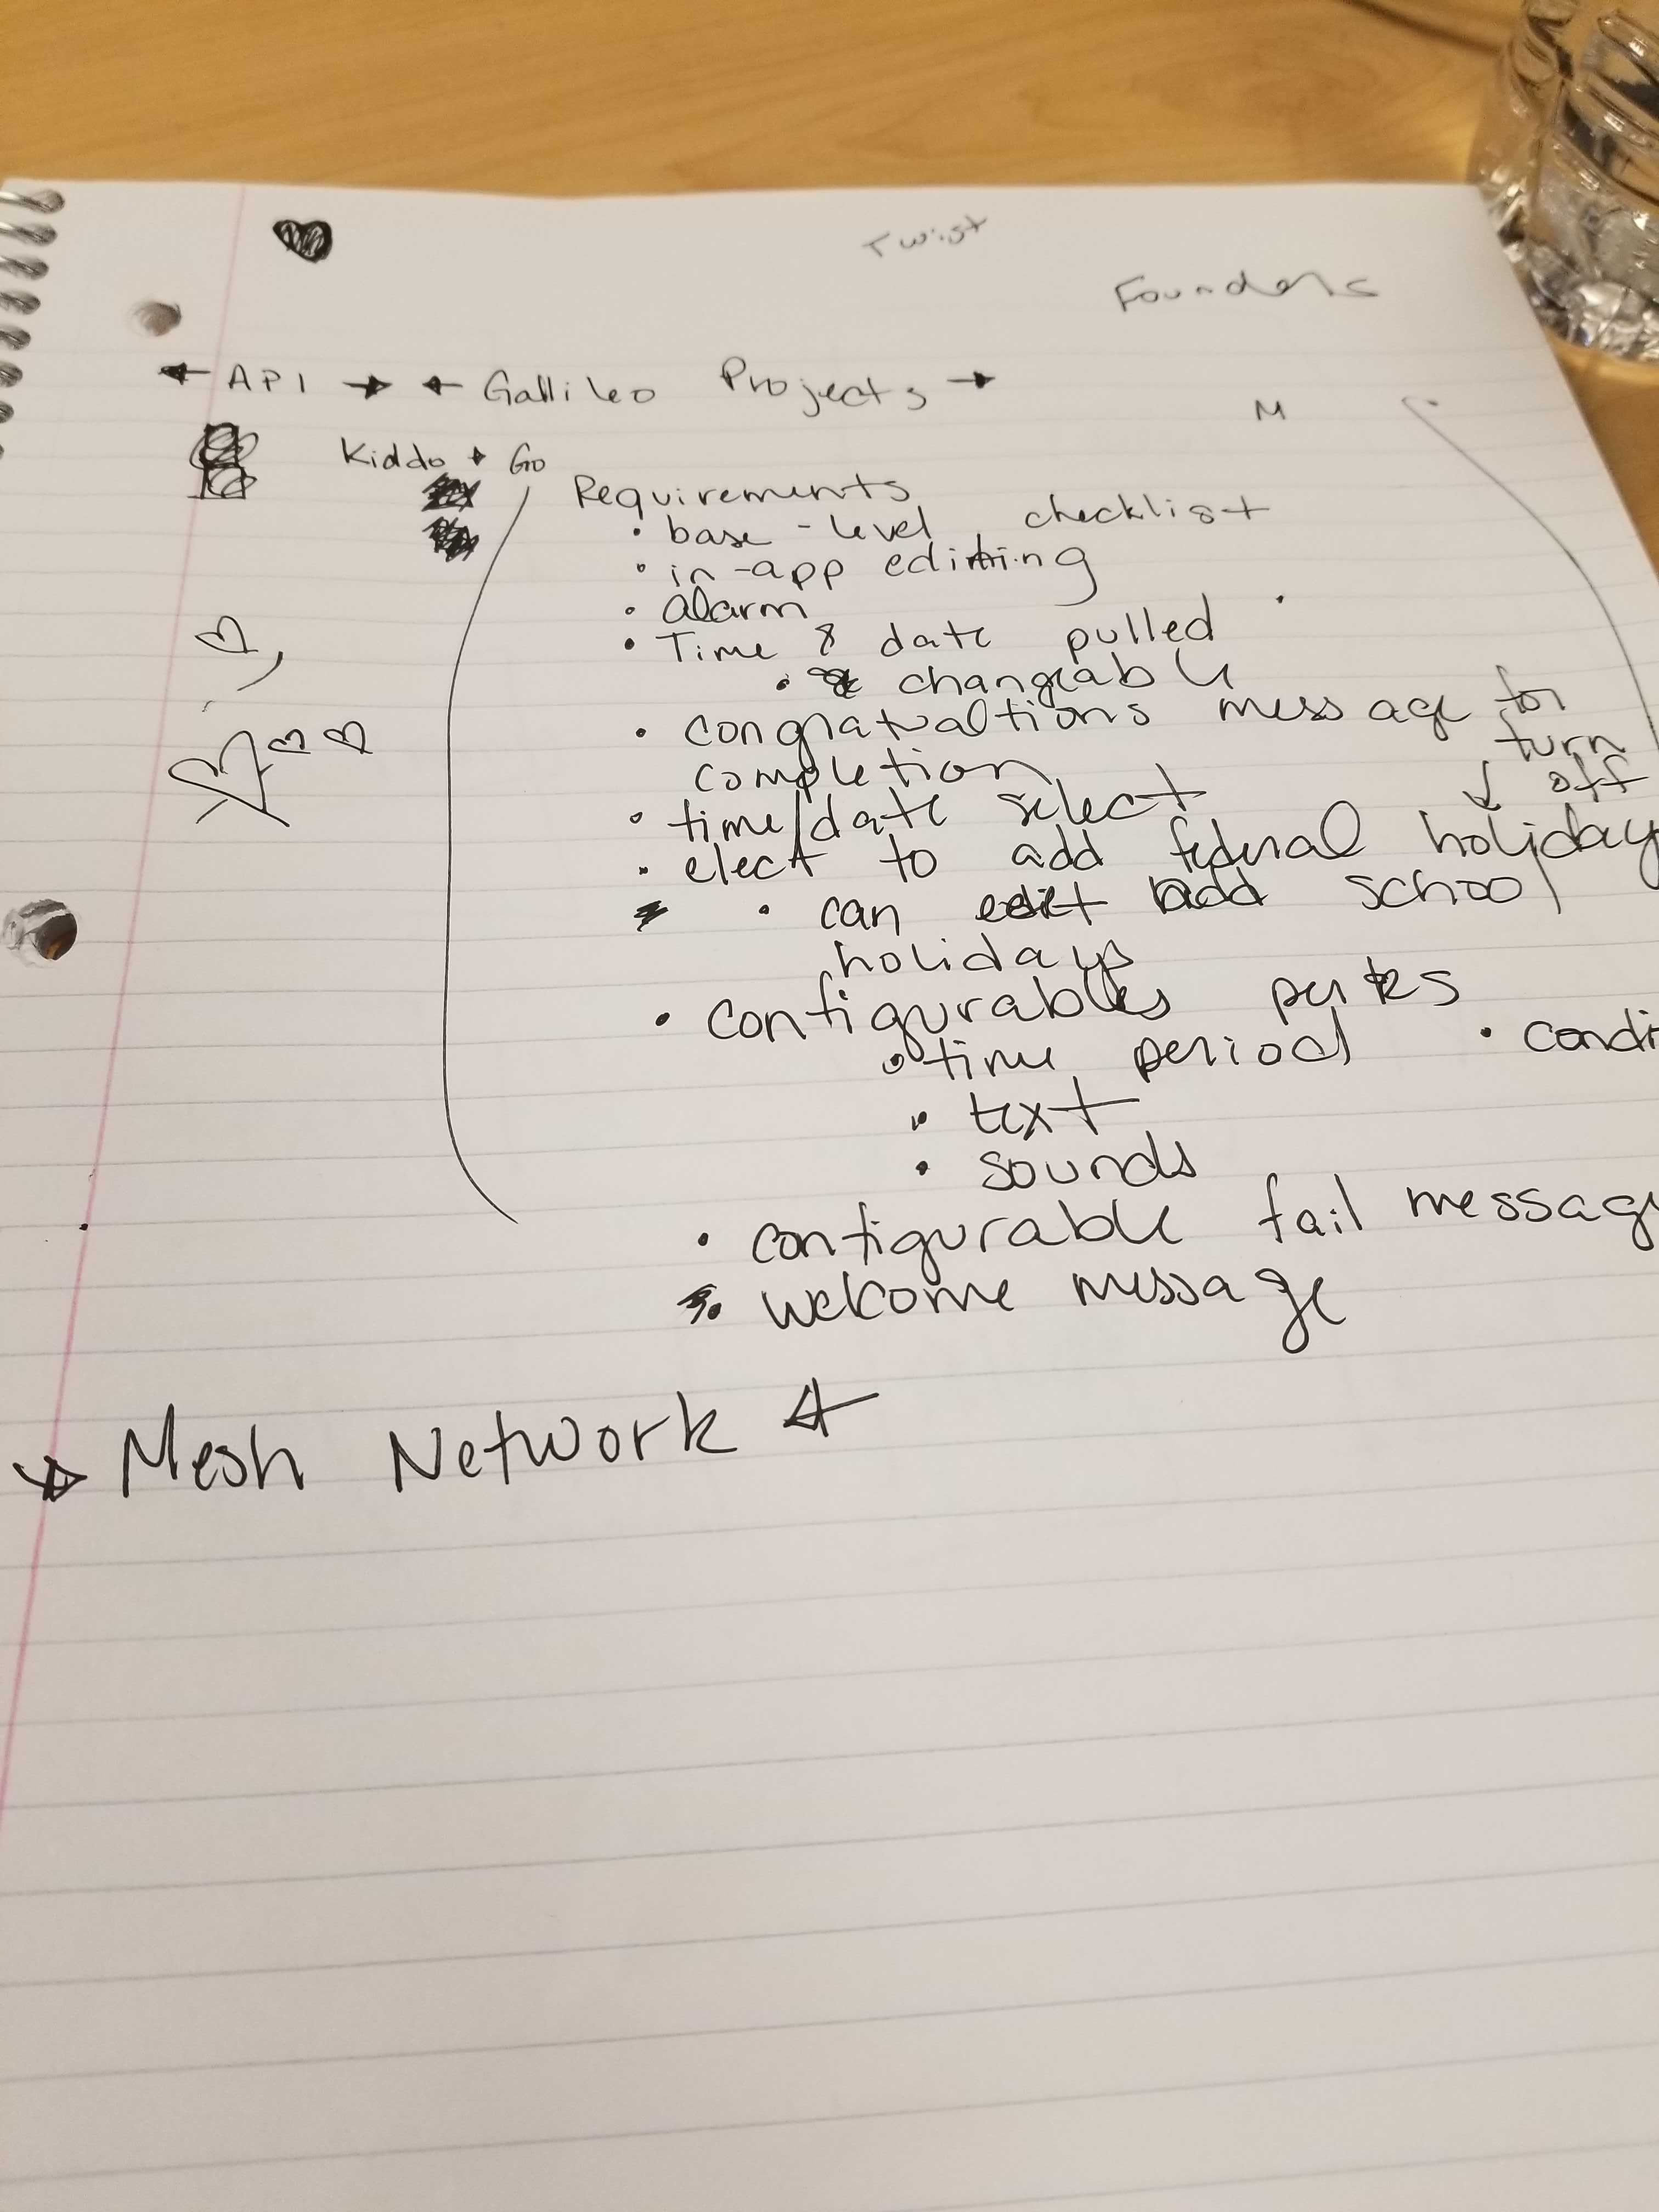 Twist
Founders
API Gallileo Projects
M
Kiddo + Go
Requirements
• base-level checklist
• in-app editing
• alarm
• Time & date pulled
• changeable
• congratualtions message for
completion
turn
off
• time/date select
• elect to add federal holiday
• can edit add school
holidays
• configurables
• time period
• text
• sounds
• configurable fail message
• welcome message
Mesh Network